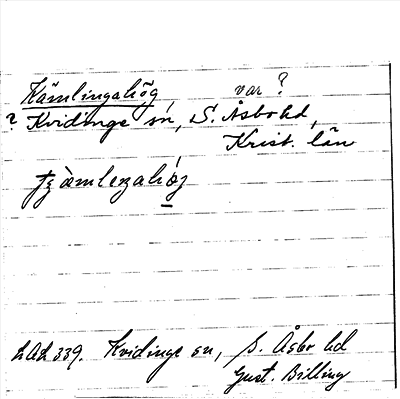 Kämlingahög var?
? Kvidinge sn, S. Åsbo hd,
Krist. län
LAL 339. Kvidinge sn, S. Åsbo hd
Gust. Billing